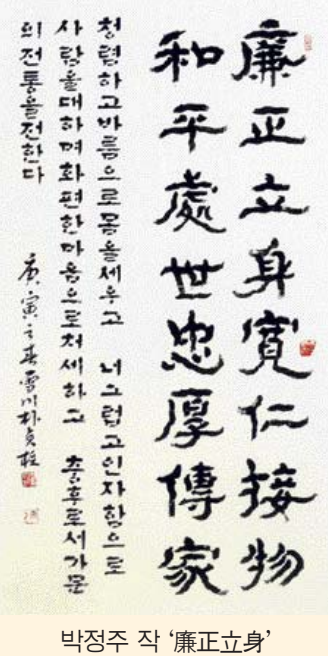 廉正立身寬仁接物
和平處世忠厚傳家
청렴하고바름으로몸을세우고 너그럽고인자함으로
사람을대하며화편한마음으로처세하고 충후로서가문
의전통을전한다
庚寅之春雪川朴貞柱
박정주 작 ‘廉正立身’